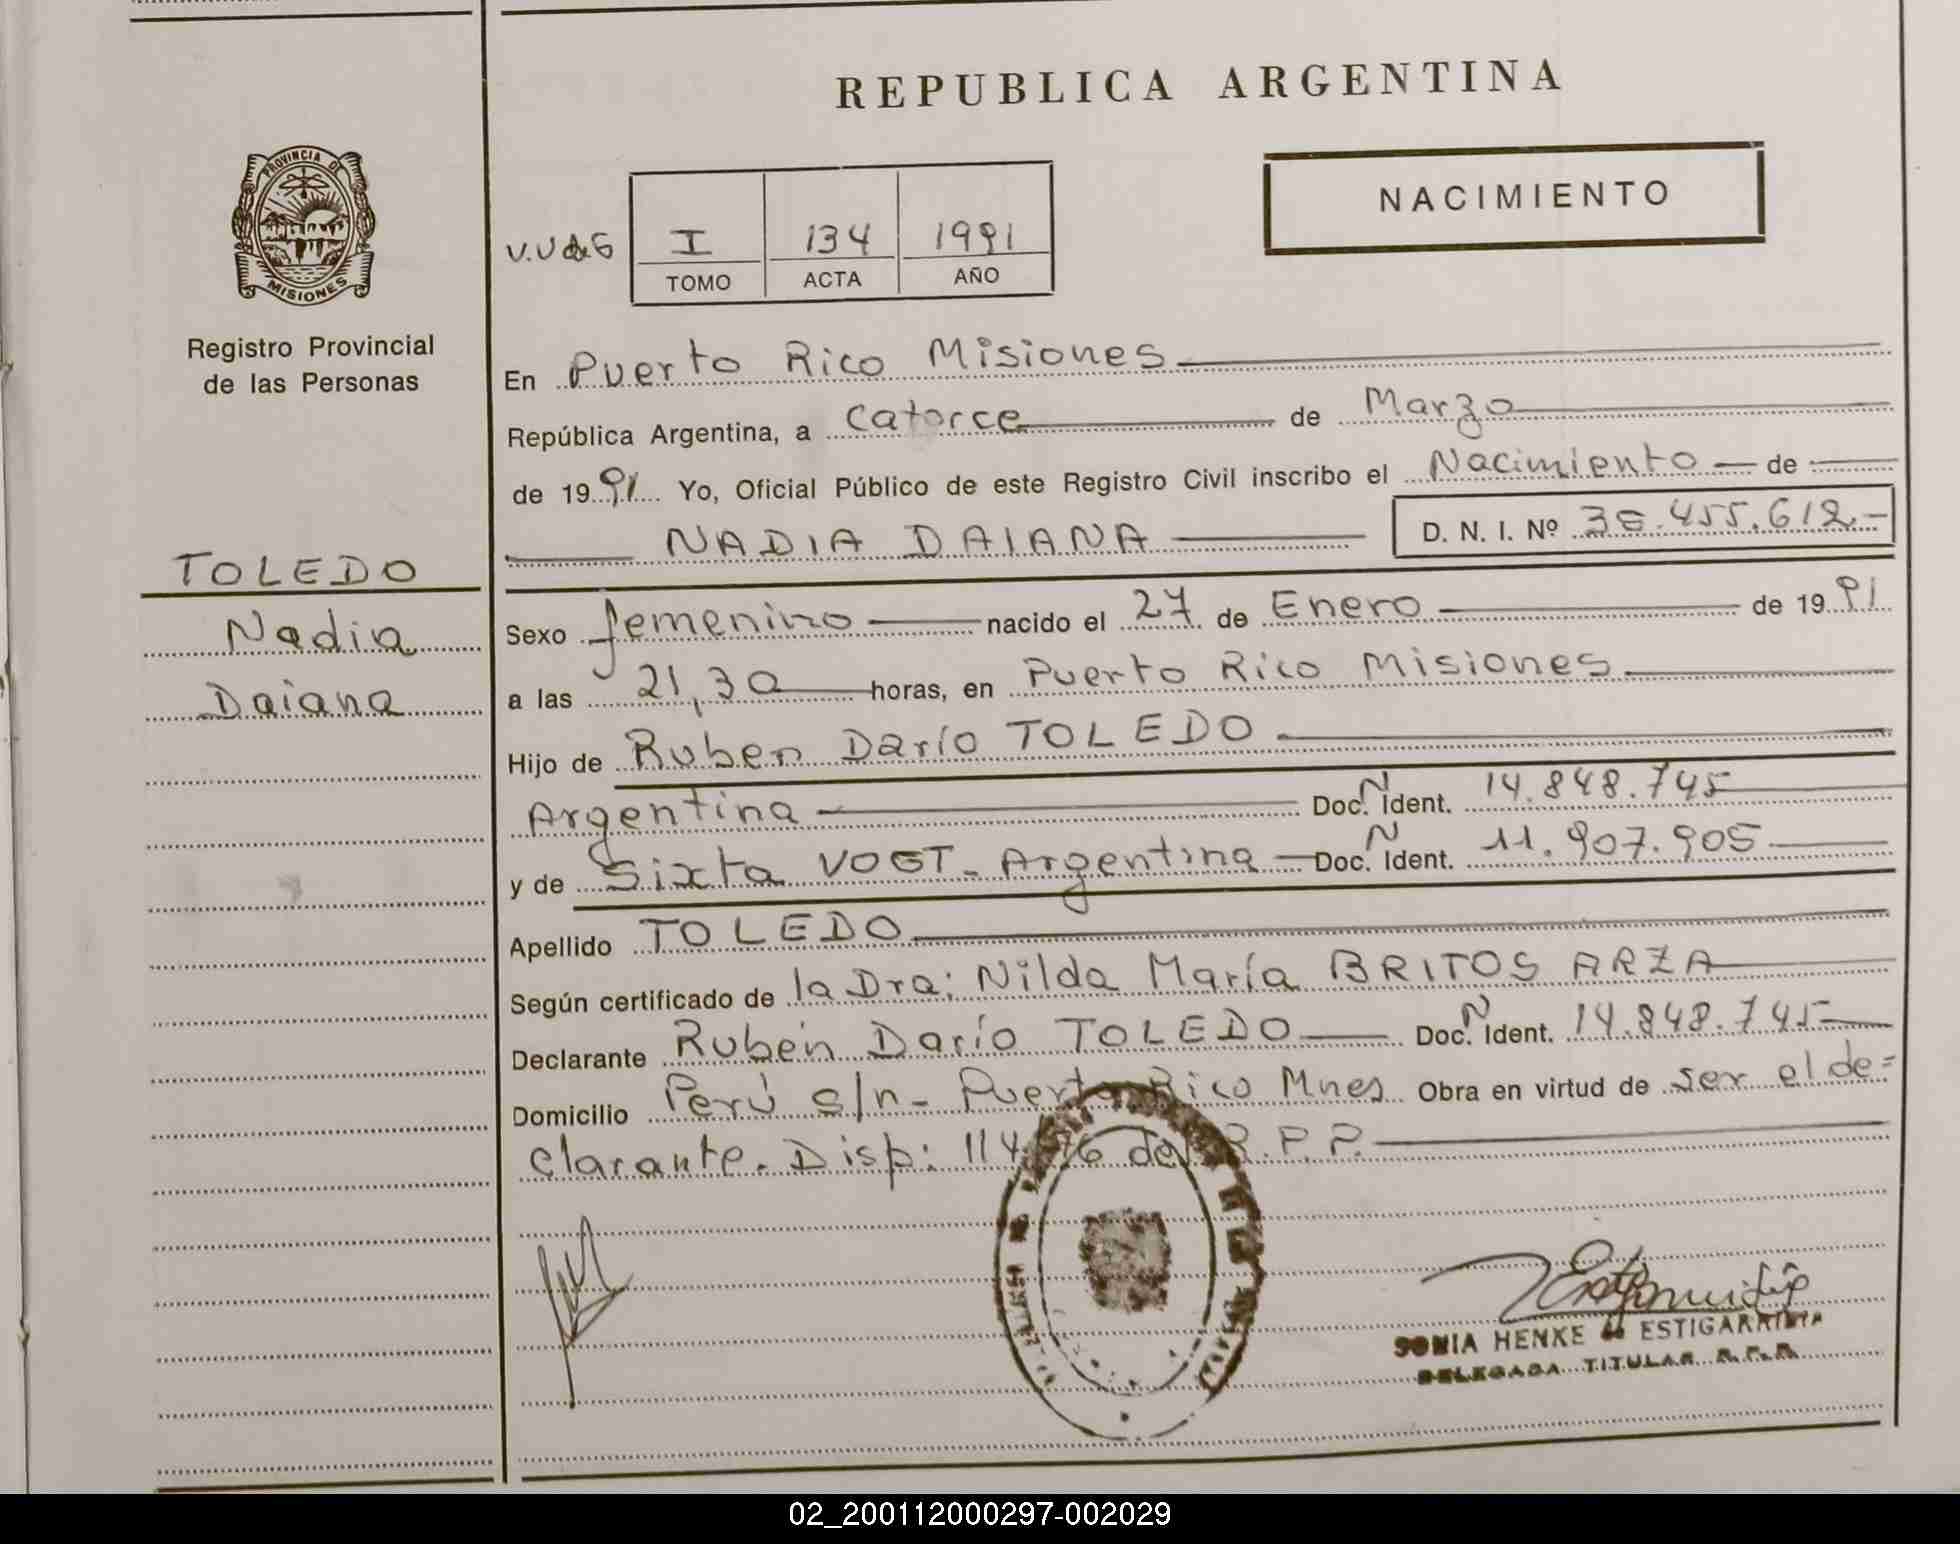 REPUBLICA ARGENTINA
PROVINCIA DE
MISIONES
Registro Provincial
de las Personas
NACIMIENTO
V.U de G
I 134 1991
TOMO ACTA AÑO
En Puerto Rico Misiones
República Argentina, a Catorce de Marzo
de 1991 Yo, Oficial Público de este Registro Civil inscribo el Nacimiento de
NADIA DAIANA D. N. I. Nº 36.455.612.-
TOLEDO
Nadia
Daiana
Sexo femenino nacido el 27 de Enero de 1991
a las 21,30 horas, en Puerto Rico Misiones
Hijo de Ruben Darío TOLEDO
Argentina Doc. N Ident. 14.848.745
y de Sixta VOGT - Argentina Doc. N Ident. 11.907.905
Apellido TOLEDO
Según certificado de la Dra; Nilda María BRITOS ARZA
Declarante Rubén Darío TOLEDO Doc. N Ident. 14.848.745
Domicilio Perú s/n - Puerto Rico Mnes Obra en virtud de ser el de=
clarante. Disp: 114/76 del R.P.P.
SONIA HENKE de ESTIGARRIBIA
DELEGADA TITULAR R.P.P.
02_200112000297-002029